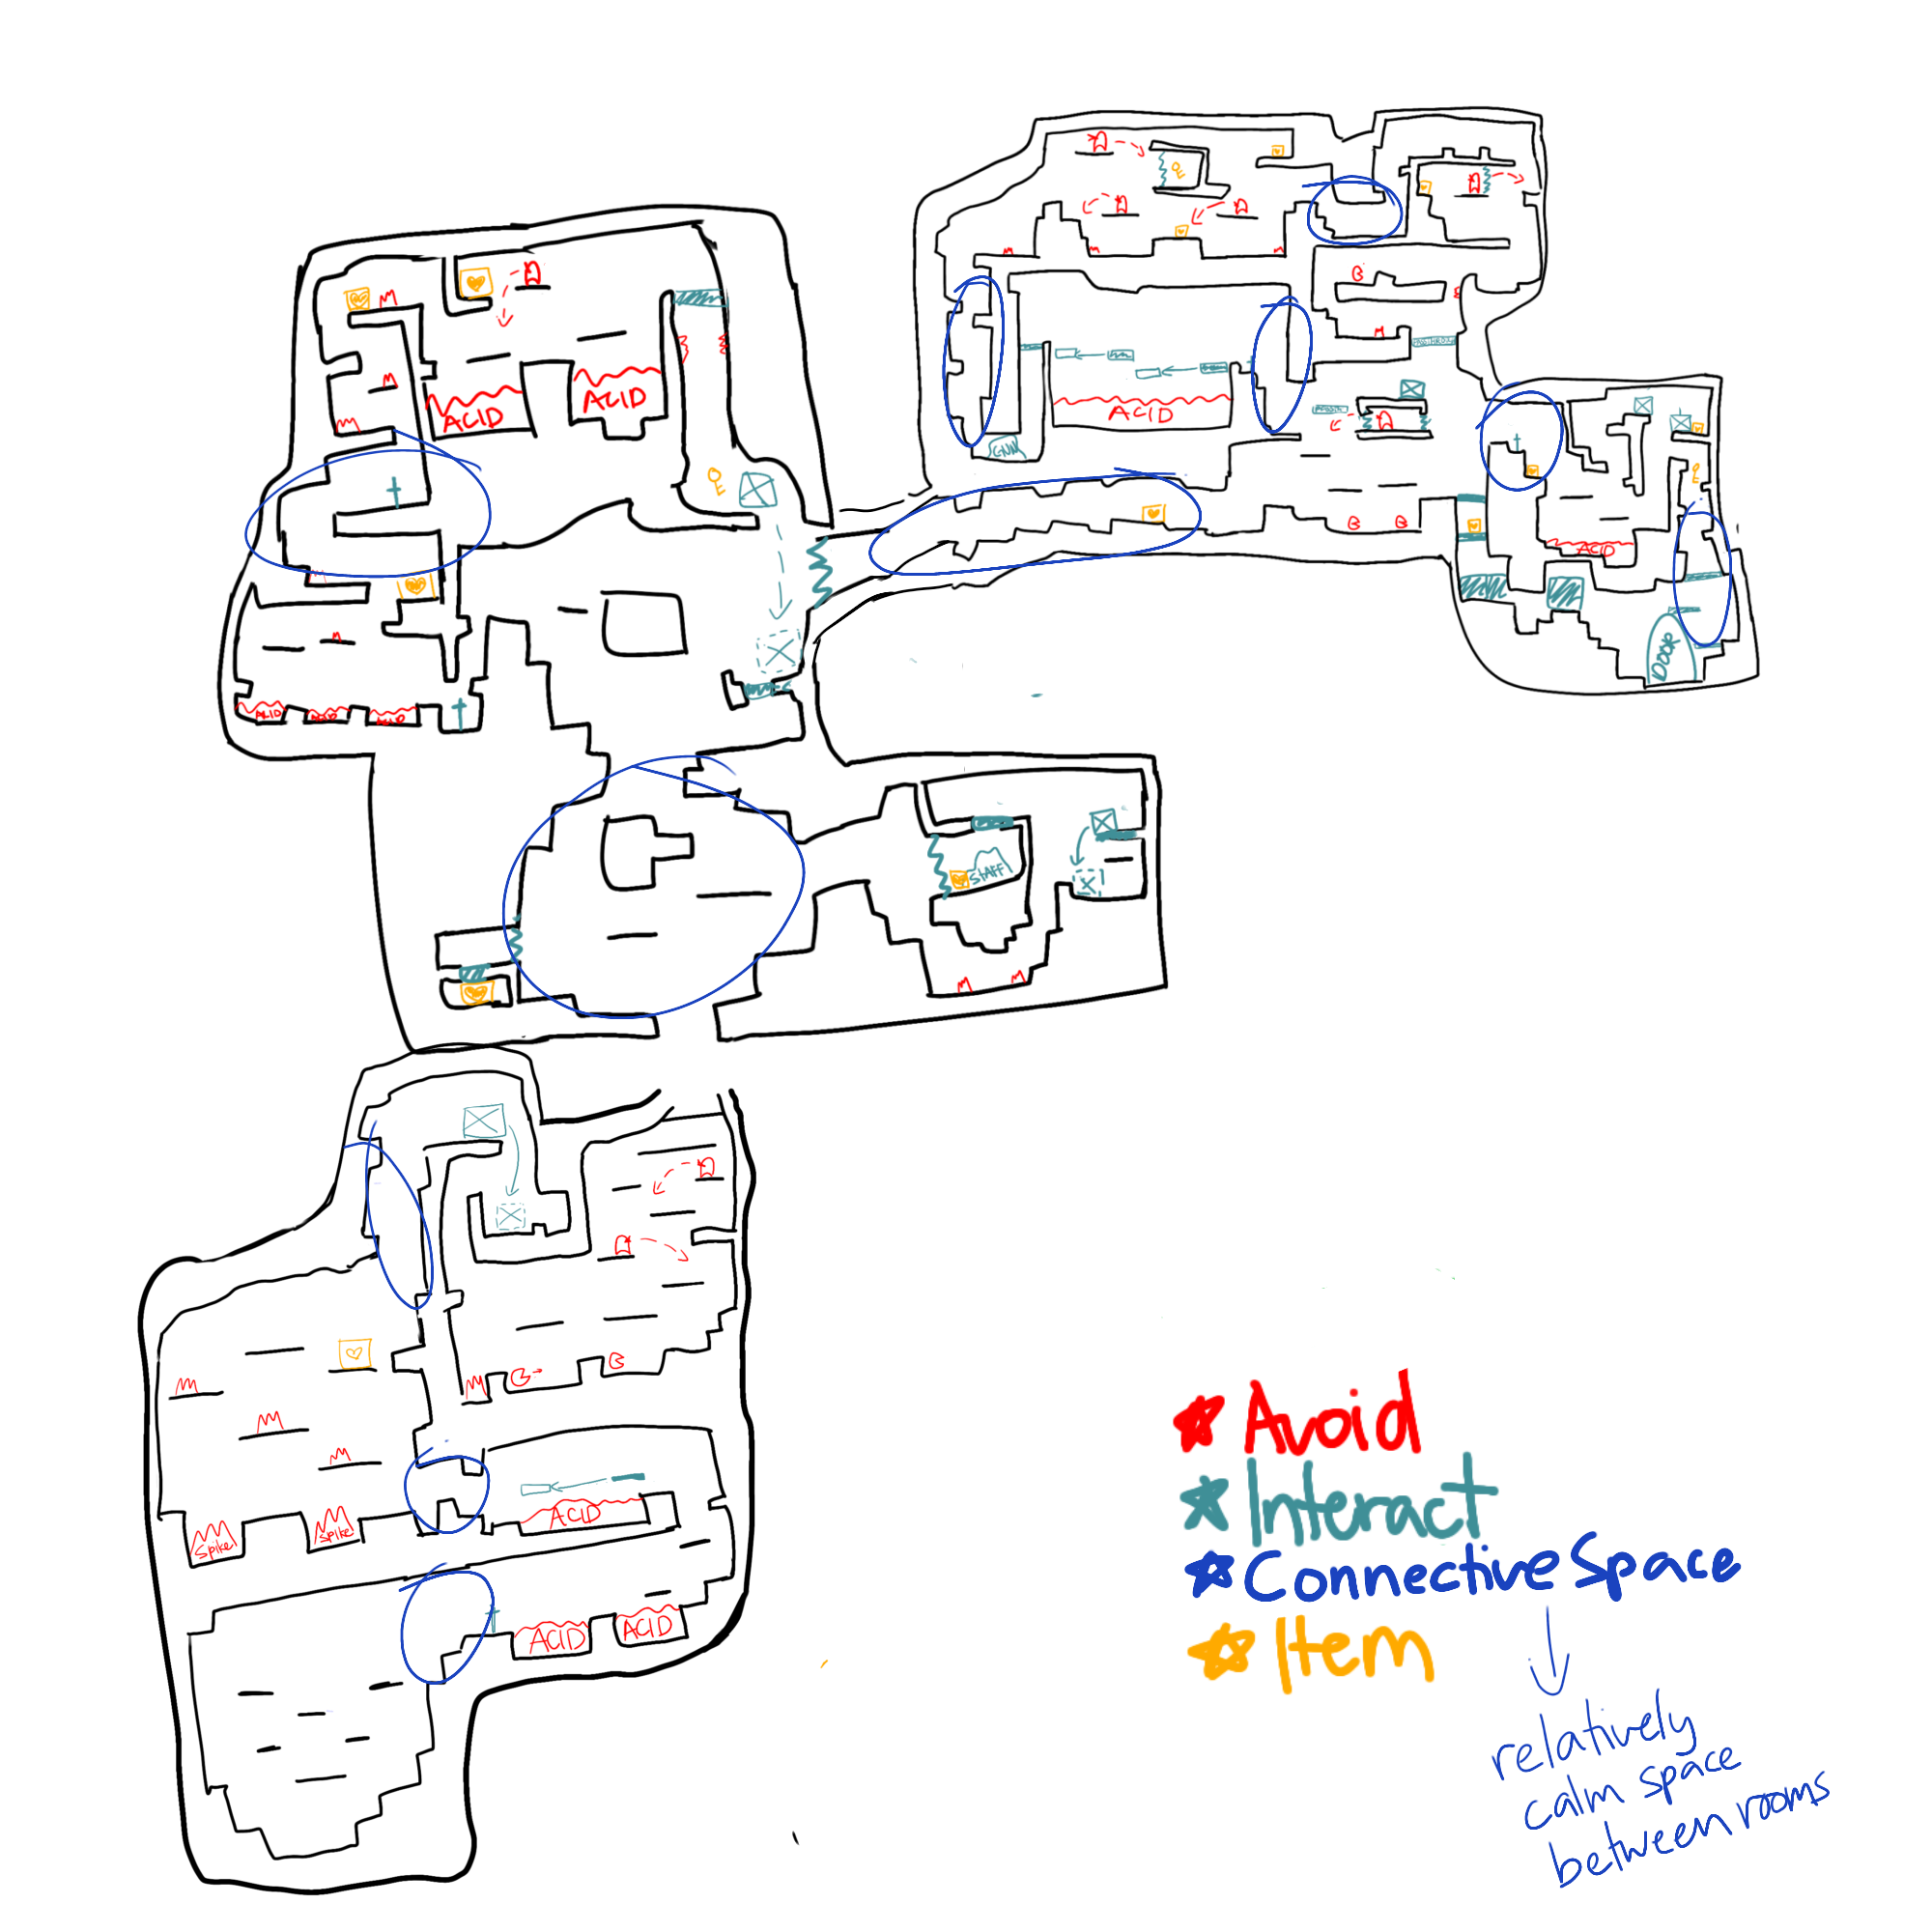 ACID
ACID
ACID
GUN
ACID
ACID
DOOR
ACID
ACID
ACID
STAFF
ACID
Spike
Spike
ACID
ACID
Avoid
Interact
Connective Space
Item
relatively
calm space
between rooms